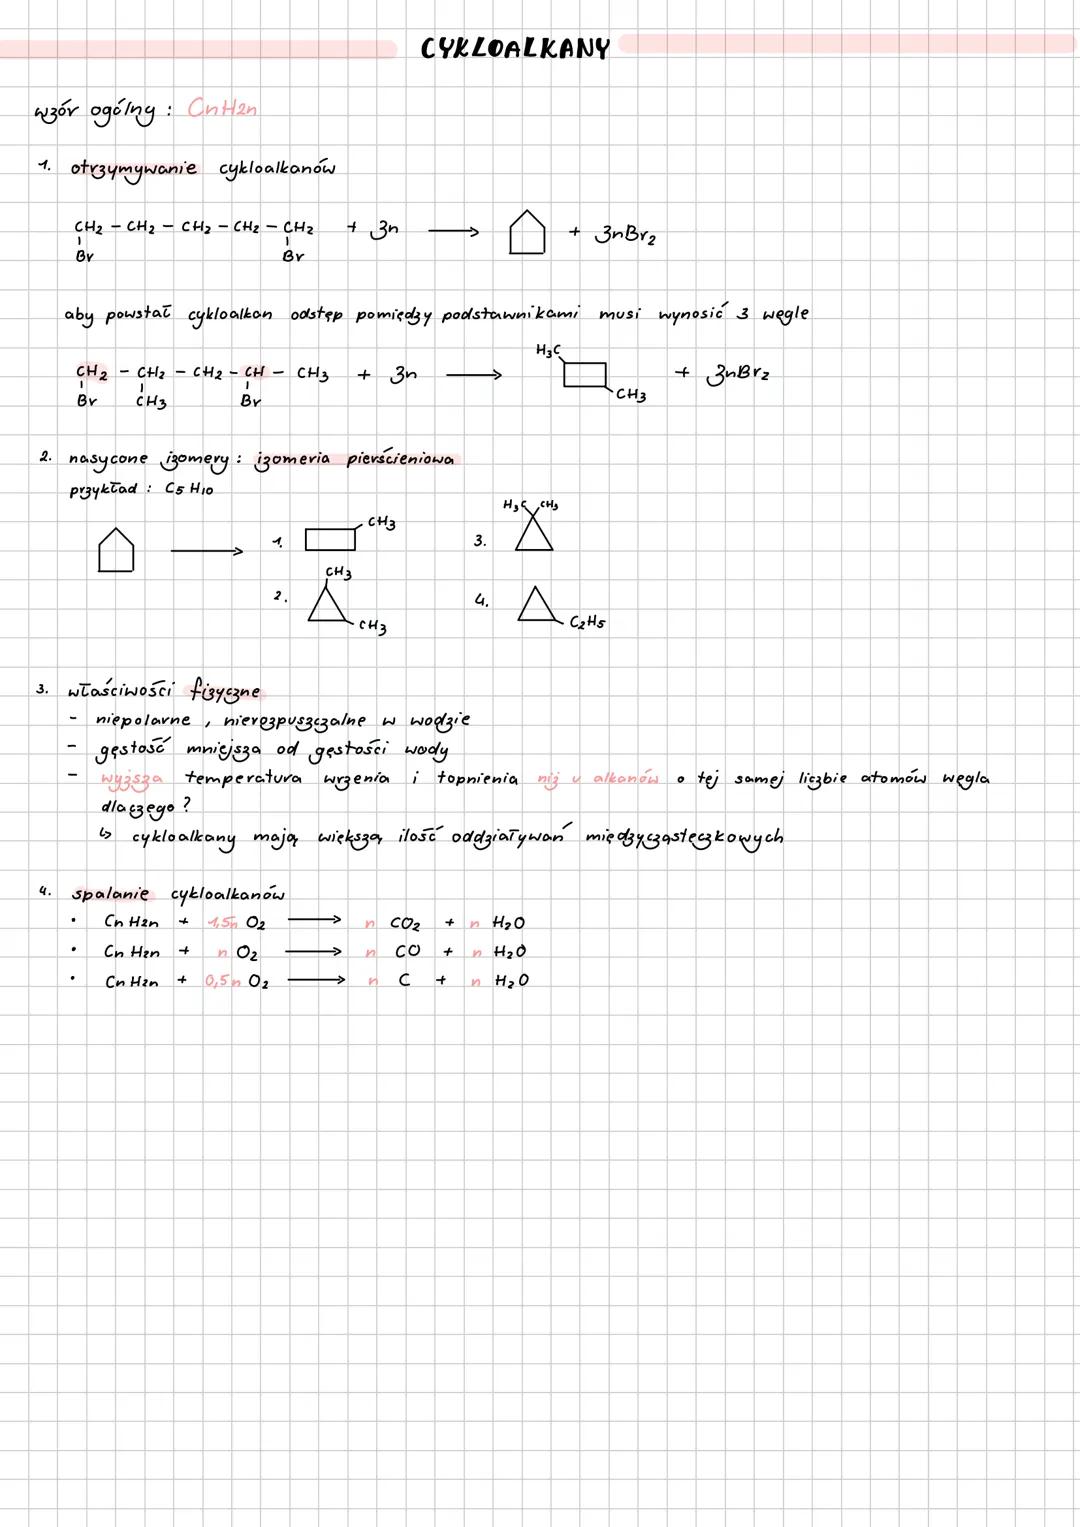 CYKLOALKANY
wzór ogólny : CnH2n
1. otrzymywanie cykloalkanów
CH2 – CH2 – CH2 – CH2 – CH2 + Zn ⟶ + ZnBr2
Br Br
aby powstał cykloalkan odstęp pomiędzy podstawnikami musi wynosić 3 węgle
H3C
CH2 – CH2 – CH2 – CH – CH3 + Zn ⟶ + ZnBr2
Br CH3 Br CH3
2. nasycone izomery : izomeria pierścieniowa
przykład : C5H10
H3C CH3
⟶ 1. CH3 3.
CH3
2. 4.
CH3 C2H5
3. właściwości fizyczne
- niepolarne , nierozpuszczalne w wodzie
- gęstość mniejsza od gęstości wody
- wyższa temperatura wrzenia i topnienia niż u alkanów o tej samej liczbie atomów węgla
dlaczego ?
↳ cykloalkany mają większą ilość oddziaływań międzycząsteczkowych
4. spalanie cykloalkanów
• CnH2n + 1,5n O2 ⟶ n CO2 + n H2O
• CnH2n + n O2 ⟶ n CO + n H2O
• CnH2n + 0,5n O2 ⟶ n C + n H2O